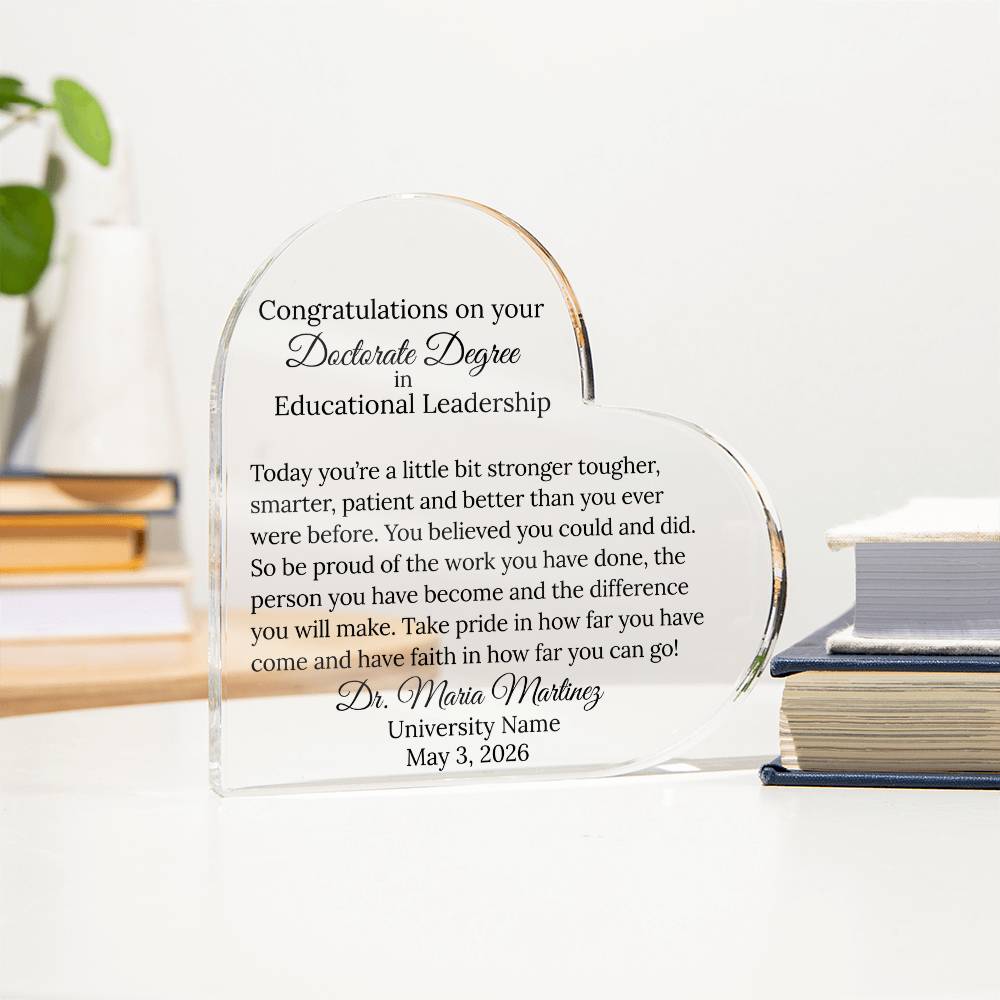 Congratulations on your
Doctorate Degree
in
Educational Leadership
Today you’re a little bit stronger tougher,
smarter, patient and better than you ever
were before. You believed you could and did.
So be proud of the work you have done, the
person you have become and the difference
you will make. Take pride in how far you have
come and have faith in how far you can go!
Dr. Maria Martinez
University Name
May 3, 2026